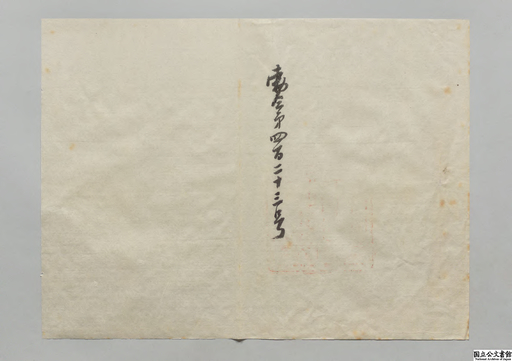 勅令第四百二十三号
国立公文書館
National Archives of Japan